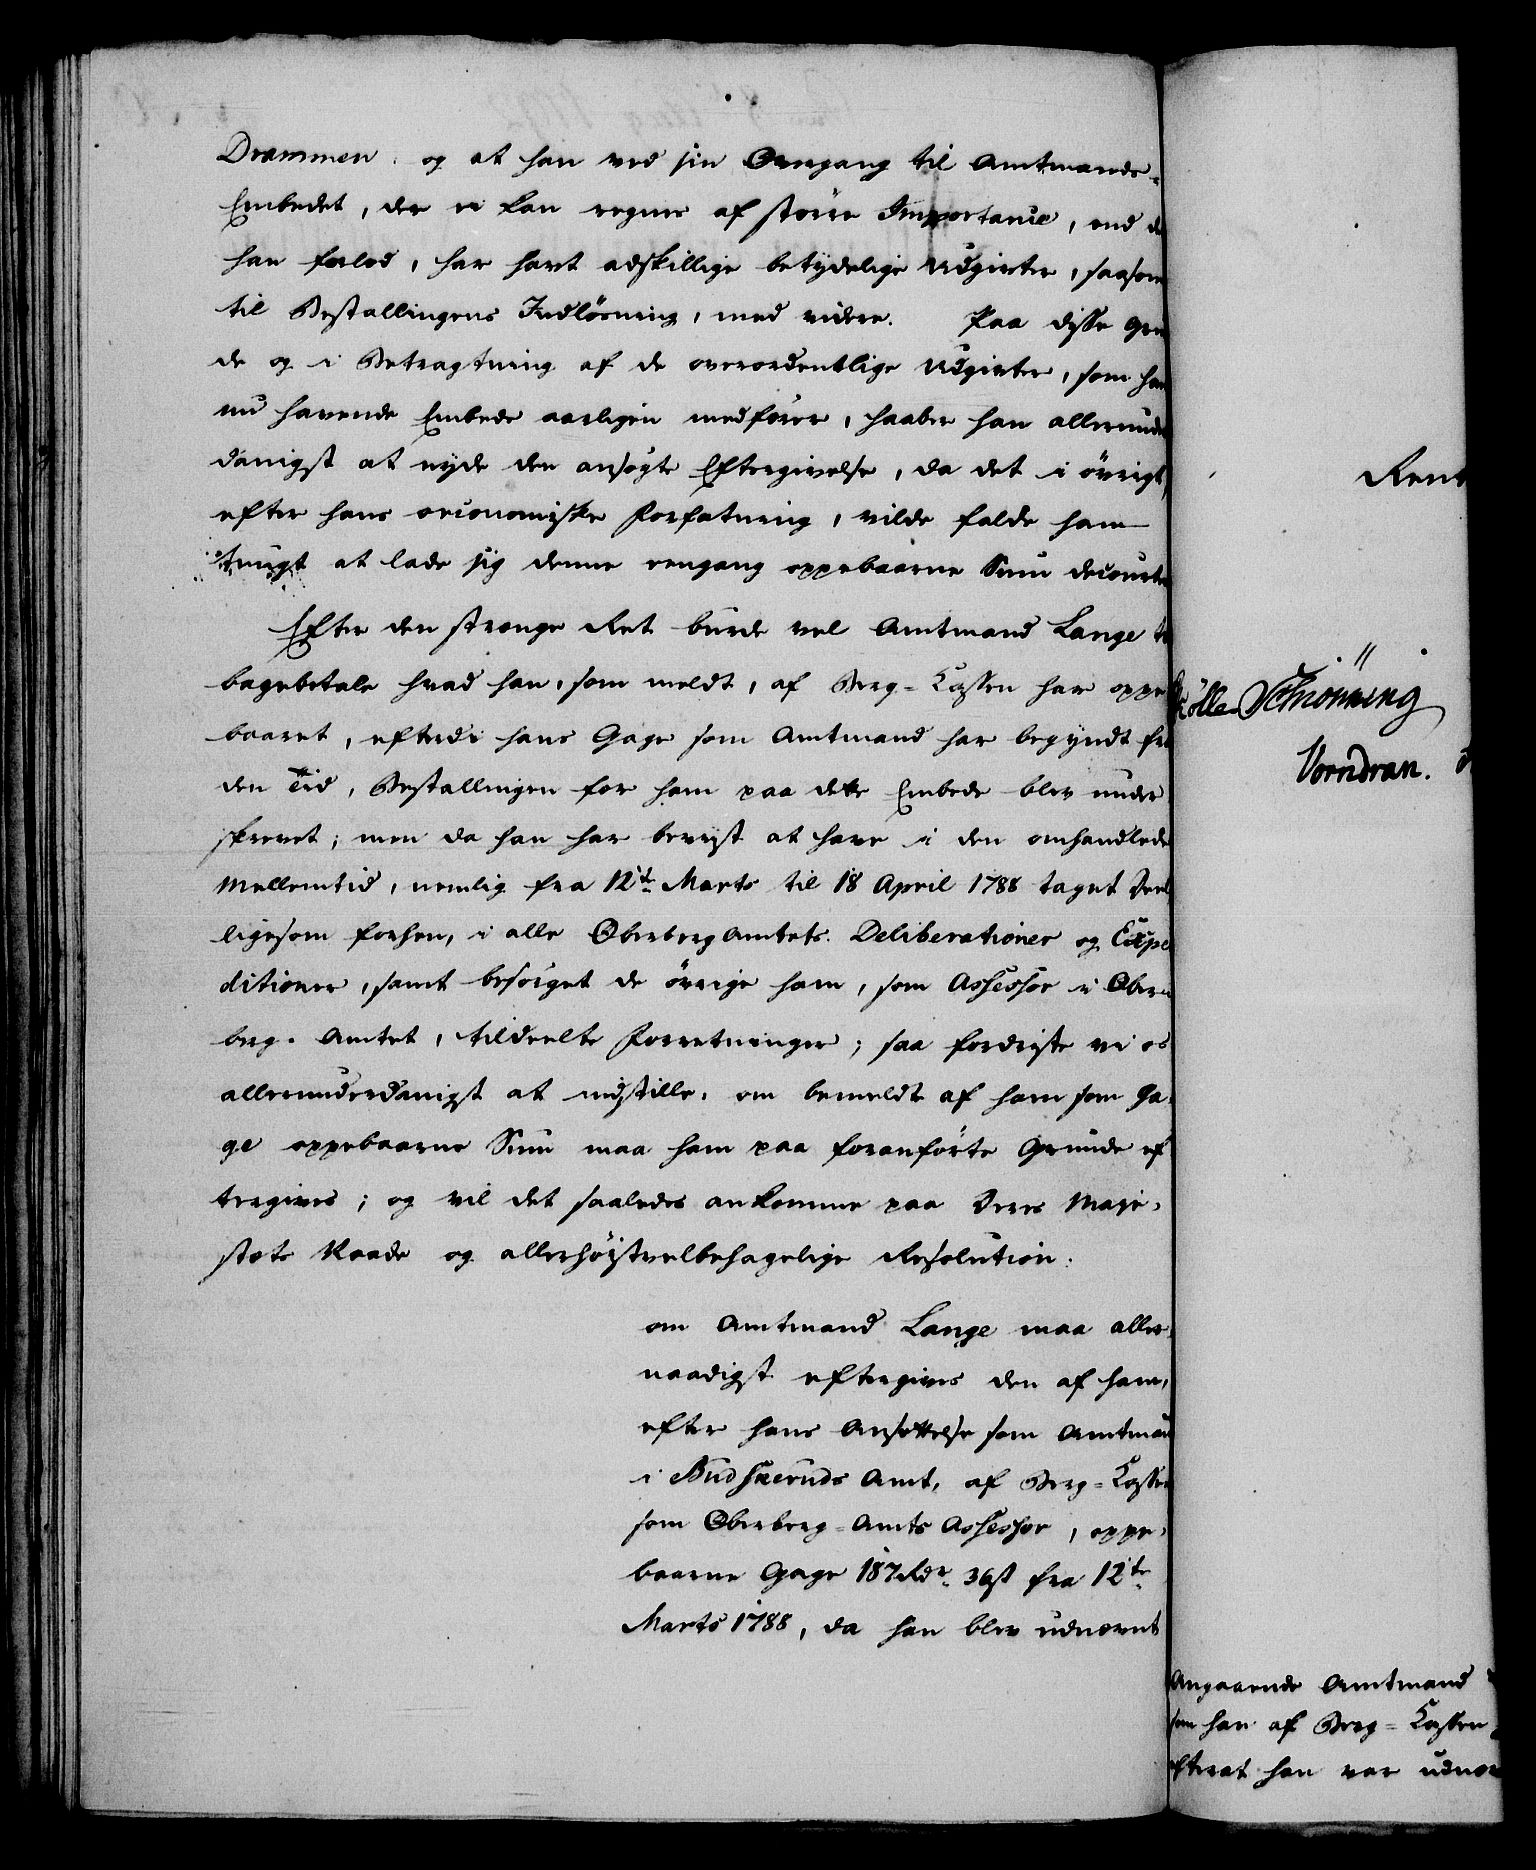 Drammen. og at han ved sin Overgang til Amtmands-
Embedet, der ei kan regnes af större Importance, end d
han forlod, har havt adskillige betydelige Udgivter, saasom
til Bestallingens Indlösning, med videre. Paa disse Grun
de og i Betragtning af de overordentlige Udgivter, som ha
nu havende Embede aarligen medförer, haaber han allerunder
danigst at nyde den ansögte Eftergivelse, da det i övrigt,
efter hans oeconomiske Forfatning, vilde falde ham
trangt at lade sig denne eengang oppebaarne Sum decourte
Efter den strenge Ret burde vel Amtmand Lange ti
bagebetale hvad han, som meldt, af Berg-Cassen har oppe
baaret, efterdi hans Gage som Amtmand har begyndt fra
den Tid, Bestallingen for ham paa dette Embede blev under
skrevet; men da han har beviist at have i den omhandlede
Mellemtid, nemlig fra 12te Marts til 18 April 1788 taget Deel
ligesom forhen, i alle Oberberg Amtets Deliberationer og Expe
ditioner, samt besörget de övrige ham, som Assessor i Ober
berg-Amtet, tildeelte Forretninger; saa fordriste vi os
allerunderdanigst at indstille, om bemeldte af ham som Ga-
ge oppebaarne Sum maa ham paa foranförte Grunde ef
tergives; og vil det saaledes ankomme paa Deres Maje-
stæts Naade og allerhöistvelbehagelige Resolution:
om Amtmand Lange maa aller-
naadigst eftergives den af ham,
efter hans Ansættelse som Amtman
i Budskeruds Amt, af Berg-Cassen
som Oberberg-Amts Assessor, oppe-
baarne Gage 187 Rdr. 36 ß fra 12te
Marts 1788, da han blev udnævnt
Rent
Schiönning
Vorndran.
Angaaende Amtmand
som han af Berg-Cassen
efterat han var udnæv